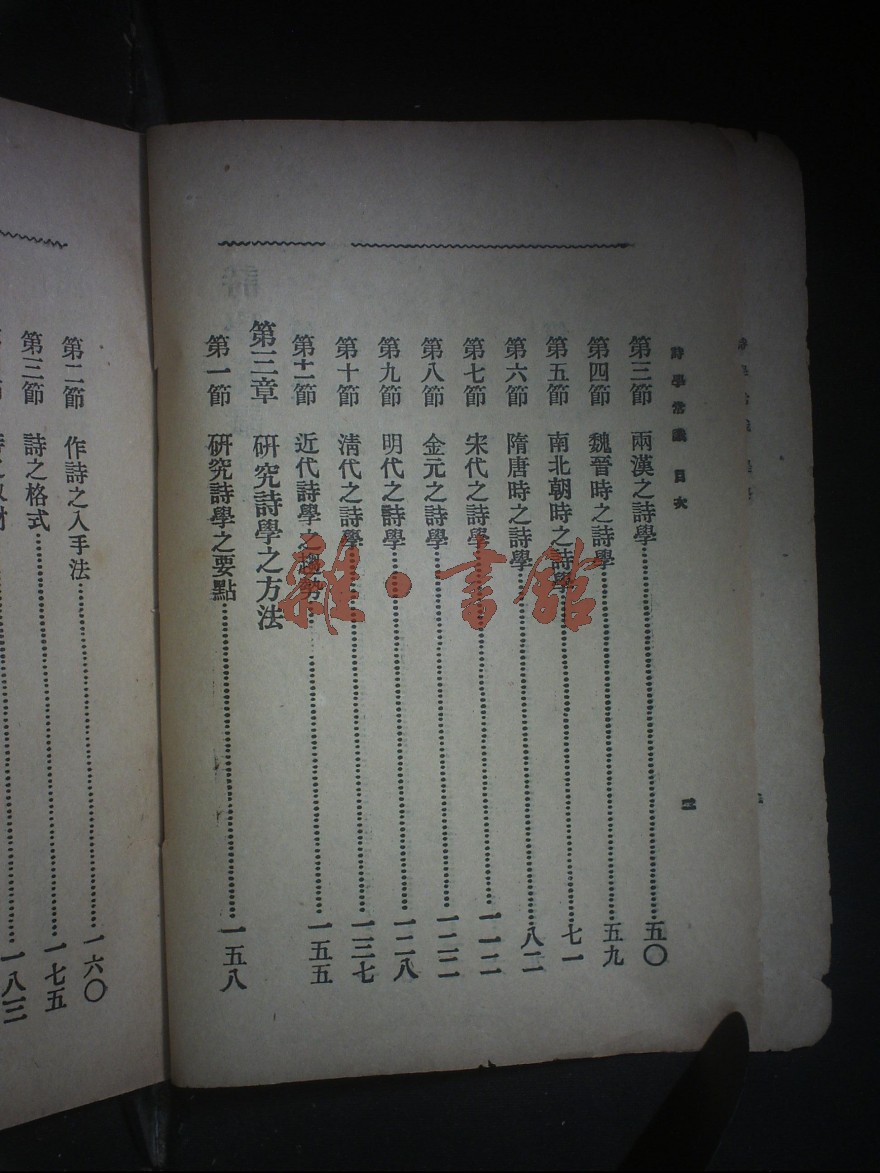 詩學常識 目次
第三節 兩漢之詩學……五〇
第四節 魏晉時之詩學……五九
第五節 南北朝時之詩學……七一
第六節 隋唐時之詩學……八二
第七節 宋代之詩學……一一二
第八節 金元之詩學……一二二
第九節 明代之詩學……一二八
第十節 清代之詩學……一三七
第十一節 近代詩學之趨勢……一五五
第三章 研究詩學之方法
第一節 研究詩學之要點……一五八
第二節 作詩之入手法……一六〇
第三節 詩之格式……一七五
雜·書館